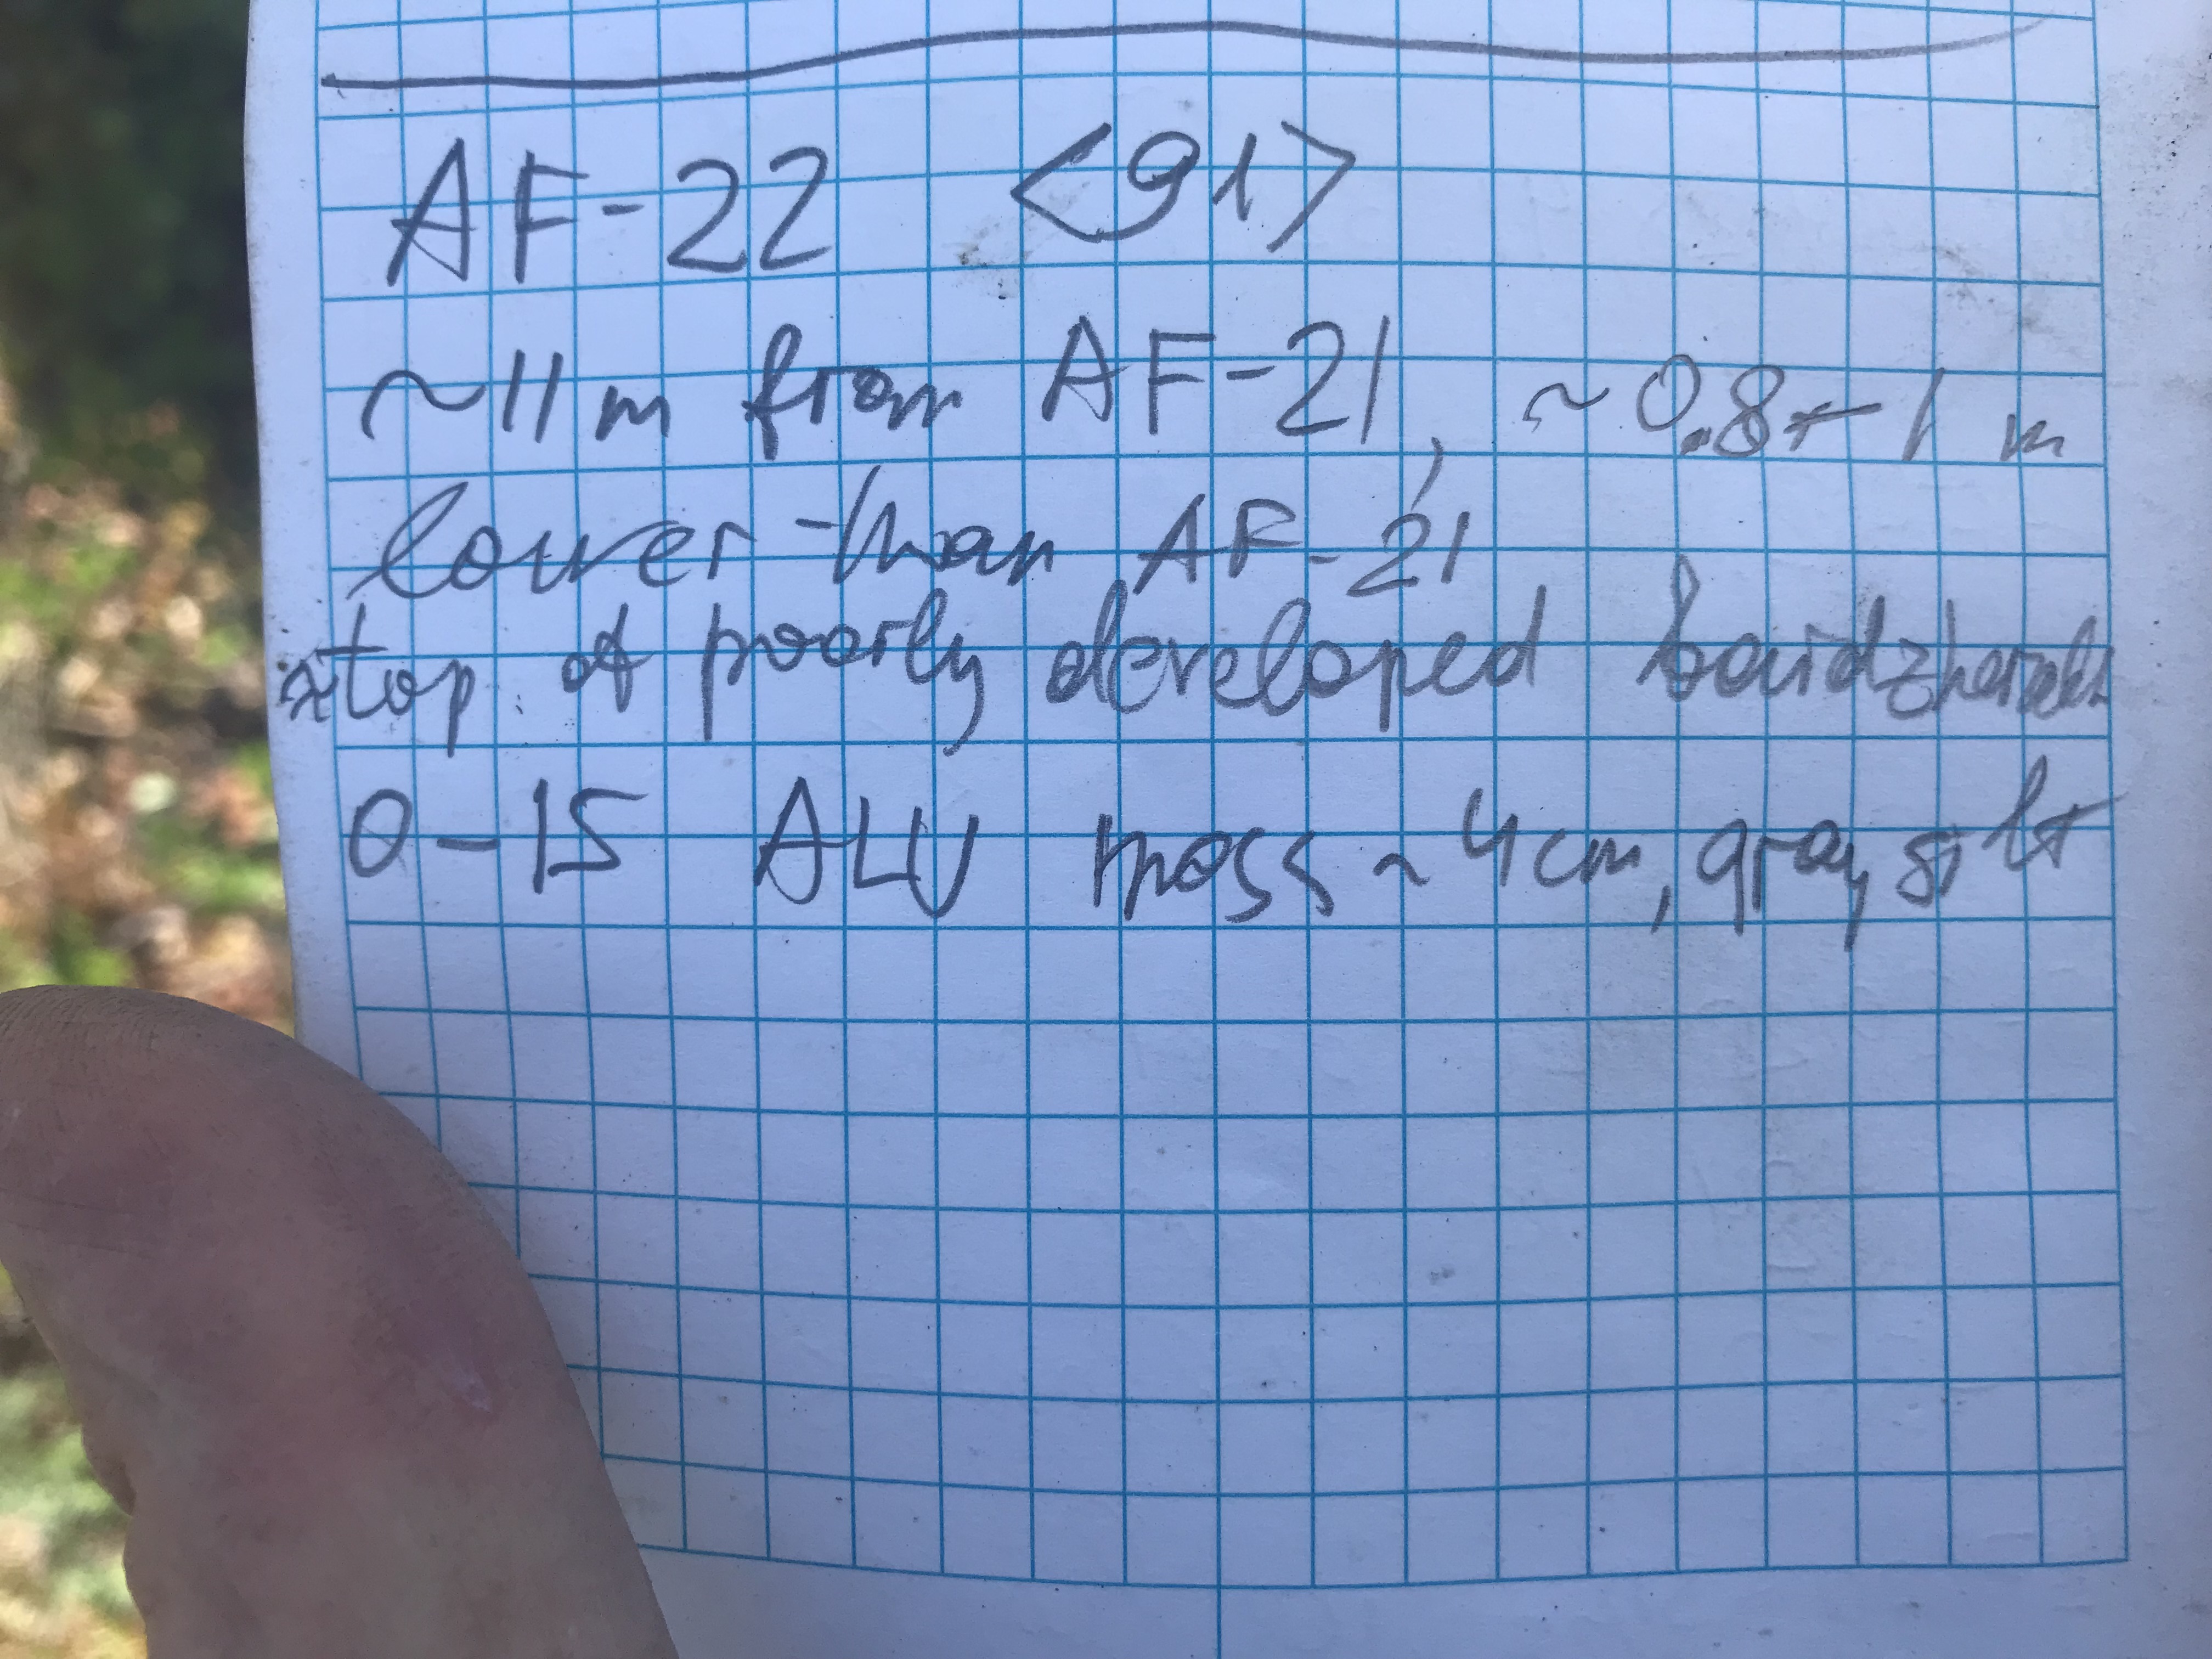 AF-22 <91>
~11 m from AF-21, ~0.8 - 1 m
lower than AF-21
top of poorly developed baidzherakh
0-15 ALU moss ~ 4 cm, gray silt